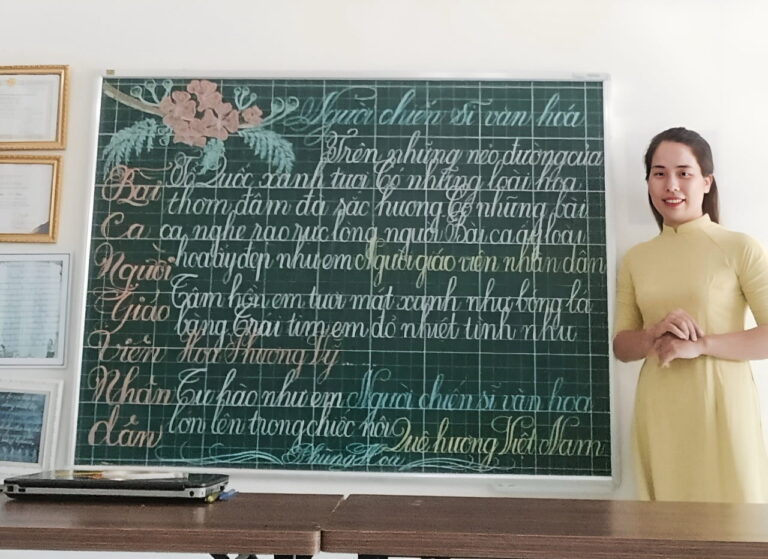 Người chiến sĩ văn hoá
Bài
Ca
Người
Giáo
Viên
Nhân
dân
Trên những nẻo đường của
Tổ Quốc xanh tươi Có những loài hoa
thơm đậm đà sắc hương Có những bài
ca nghe rạo rực lòng người Bài ca ấy loài
hoa ấy đẹp như em Người giáo viên nhân dân
Tâm hồn em tươi mát xanh như bóng lá
bàng Trái tim em đỏ nhiệt tình như
Hoa Phượng Vỹ...
Tự hào như em Người chiến sĩ văn hoá
lớn lên trong chiếc nôi Quê hương Việt Nam
Phùng Hoa